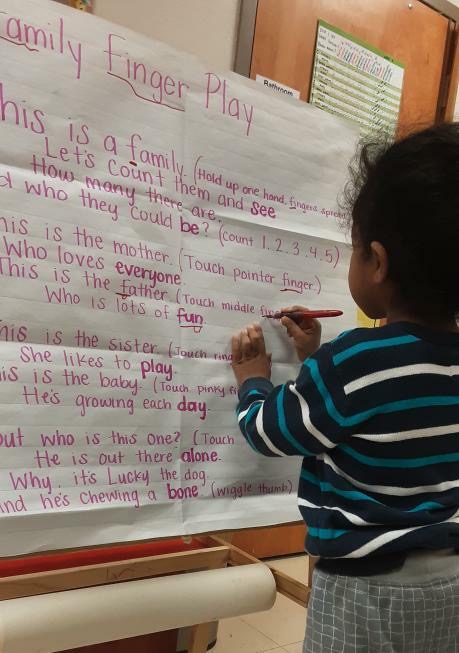 amily Finger Play
Bathroom
his is a family. (Hold up one hand, fingers spread
Let's Count them and see
How many there are.
d who they could be? (count 1. 2. 3. 4. 5)
his is the mother. (Touch pointer finger.)
Who loves everyone.
This is the father (Touch middle fing
Who is lots of fun.
his is the sister. (Touch ring
She likes to play.
is is the baby. (Touch pinky fi
He's growing each day.
out who is this one? (Touch
He is out there alone.
Why, it's Lucky the dog.
nd he's chewing a bone. (wiggle thumb)